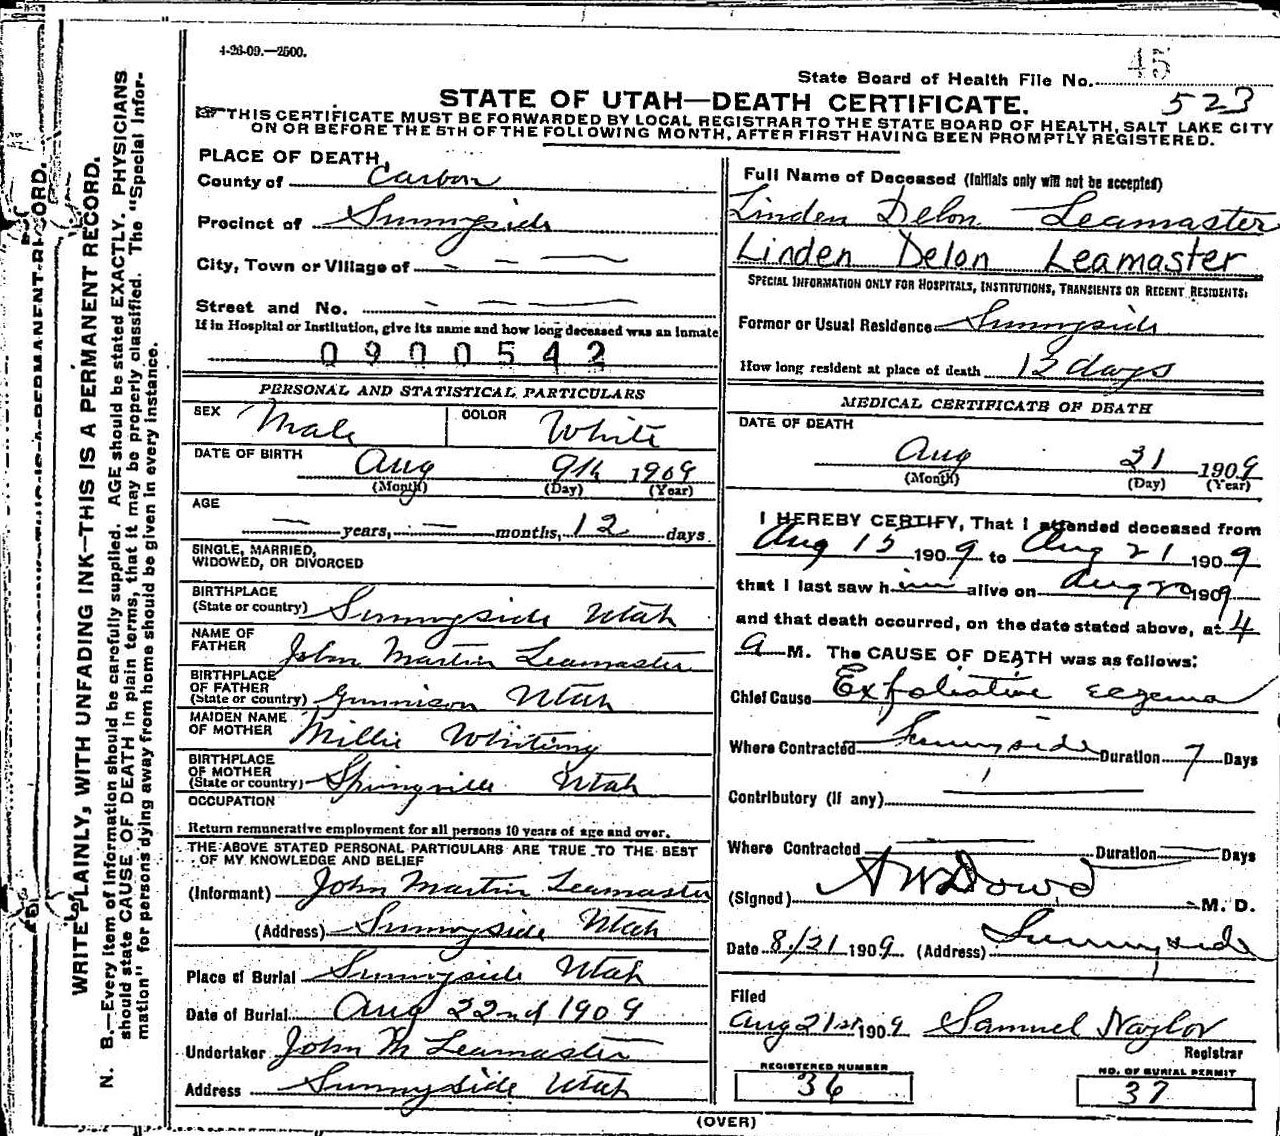 4-26-09.—2500.
State Board of Health File No. 45
STATE OF UTAH—DEATH CERTIFICATE. 523
THIS CERTIFICATE MUST BE FORWARDED BY LOCAL REGISTRAR TO THE STATE BOARD OF HEALTH, SALT LAKE CITY
ON OR BEFORE THE 5TH OF THE FOLLOWING MONTH, AFTER FIRST HAVING BEEN PROMPTLY REGISTERED.
WRITE PLAINLY, WITH UNFADING INK—THIS IS A PERMANENT RECORD.
N. B.—Every item of information should be carefully supplied. AGE should be stated EXACTLY. PHYSICIANS
should state CAUSE OF DEATH in plain terms, that it may be properly classified. The "Special Infor-
mation" for persons dying away from home should be given in every instance.
PLACE OF DEATH
County of Carbon
Precinct of Sunnyside
City, Town or Village of — — —
Street and No. — — —
If in Hospital or Institution, give its name and how long deceased was an inmate
0900542
PERSONAL AND STATISTICAL PARTICULARS
SEX Male COLOR White
DATE OF BIRTH Aug 9th 1909
(Month) (Day) (Year)
AGE
— years, — months, 12 days
SINGLE, MARRIED,
WIDOWED, OR DIVORCED
BIRTHPLACE
(State or country) Sunnyside Utah
NAME OF
FATHER John Martin Leamaster
BIRTHPLACE
OF FATHER
(State or country) Gunnison Utah
MAIDEN NAME
OF MOTHER Millie Whiting
BIRTHPLACE
OF MOTHER
(State or country) Springville Utah
OCCUPATION
Return remunerative employment for all persons 10 years of age and over.
THE ABOVE STATED PERSONAL PARTICULARS ARE TRUE TO THE BEST
OF MY KNOWLEDGE AND BELIEF
(Informant) John Martin Leamaster
(Address) Sunnyside Utah
Place of Burial Sunnyside Utah
Date of Burial Aug 22nd 1909
Undertaker John M Leamaster
Address Sunnyside Utah
Full Name of Deceased (Initials only will not be accepted)
Linden Delon Leamaster
Linden Delon Leamaster
SPECIAL INFORMATION ONLY FOR HOSPITALS, INSTITUTIONS, TRANSIENTS OR RECENT RESIDENTS:
Former or Usual Residence Sunnyside
How long resident at place of death 12 days
MEDICAL CERTIFICATE OF DEATH
DATE OF DEATH
Aug 21 1909
(Month) (Day) (Year)
I HEREBY CERTIFY, That I attended deceased from
Aug 15 1909 to Aug 21 1909
that I last saw him alive on Aug 20 1909
and that death occurred, on the date stated above, at 4
a M. The CAUSE OF DEATH was as follows:
Chief Cause Exfoliative eczema
Where Contracted Sunnyside Duration 7 Days
Contributory (if any) —
Where Contracted — Duration — Days
(Signed) A W Dowd M. D.
Date 8/21 1909 (Address) Sunnyside
Filed
Aug 21st 1909 Samuel Naylor
Registrar
REGISTERED NUMBER
36
NO. OF BURIAL PERMIT
37
(OVER)